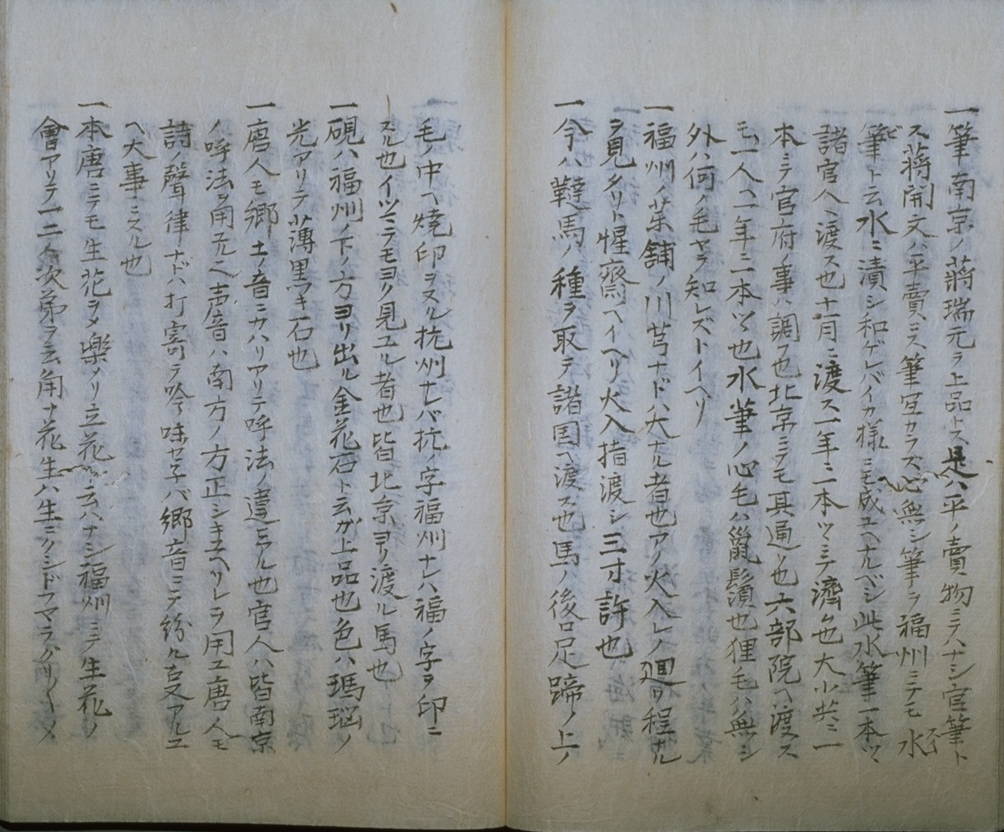 一筆南京ノ蒋瑞元ヲ上品トス是ハ平ノ賣物ニテハナシ官筆ト
ス蒋開文ハ平賣ニス筆宜カラズ心無シ筆ヲ福州ニテモ水
筆ト云水ニ漬シ和ゲレバイカ様ニモ成ユヘナルベシ此水筆一本ツヽ
諸官ヘ渡ス也十月ニ渡ス一年ニ二本ツヽニテ濟也大小共ニ一
本ニテ官府ノ事ハ調也北京ニテモ其通也六部院ヘ渡ス
モ一人ヘ一年ニ二本ツヽ也水筆ノ心毛ハ鼠鬚也狸毛ハ無シ
外ハ何ノ毛ヤラ知レズトイヘリ
一福州ノ茱舗ノ川芎ナド大ナル者也アノ火入レノ廻ヨ程ナル
ヲ見タリト惺齋ヘイヘリ火入指渡シ三寸許也
一今ハ韃馬ノ種ヲ取テ諸国ヘ渡ス也馬ノ後口足蹄ノ上ノ
毛ノ中ヘ焼印ヲスル杭州ナレバ杭ノ字福州ナレハ福ノ字ヲ印ニ
スル也イツニテモヨク見ユル者也皆北京ヨリ渡ル馬也
一硯ハ福州ノ下ノ方ヨリ出ル金花石ト云ガ上品也色ハ瑪瑙ノ
光アリテ薄黒キ石也
一唐人モ郷土ノ音ニカハリアリテ呼法ノ違アル也官人ハ皆南京
ノ呼法ヲ用元ヘ声音ハ南方ノ方正シキユヘソレヲ用ユ唐人モ
詩ノ聲律ナドハ打寄テ吟味セ子バ郷音ニテ紛ル支アルユ
ヘ大事ニスル也
一本唐ニテモ生花ヲメ樂ノリ立花ガ云ハナシ福州ニテ生花ノ
會アリテ一二ト次第ヲ云角ナ花生ハ生ニクシ